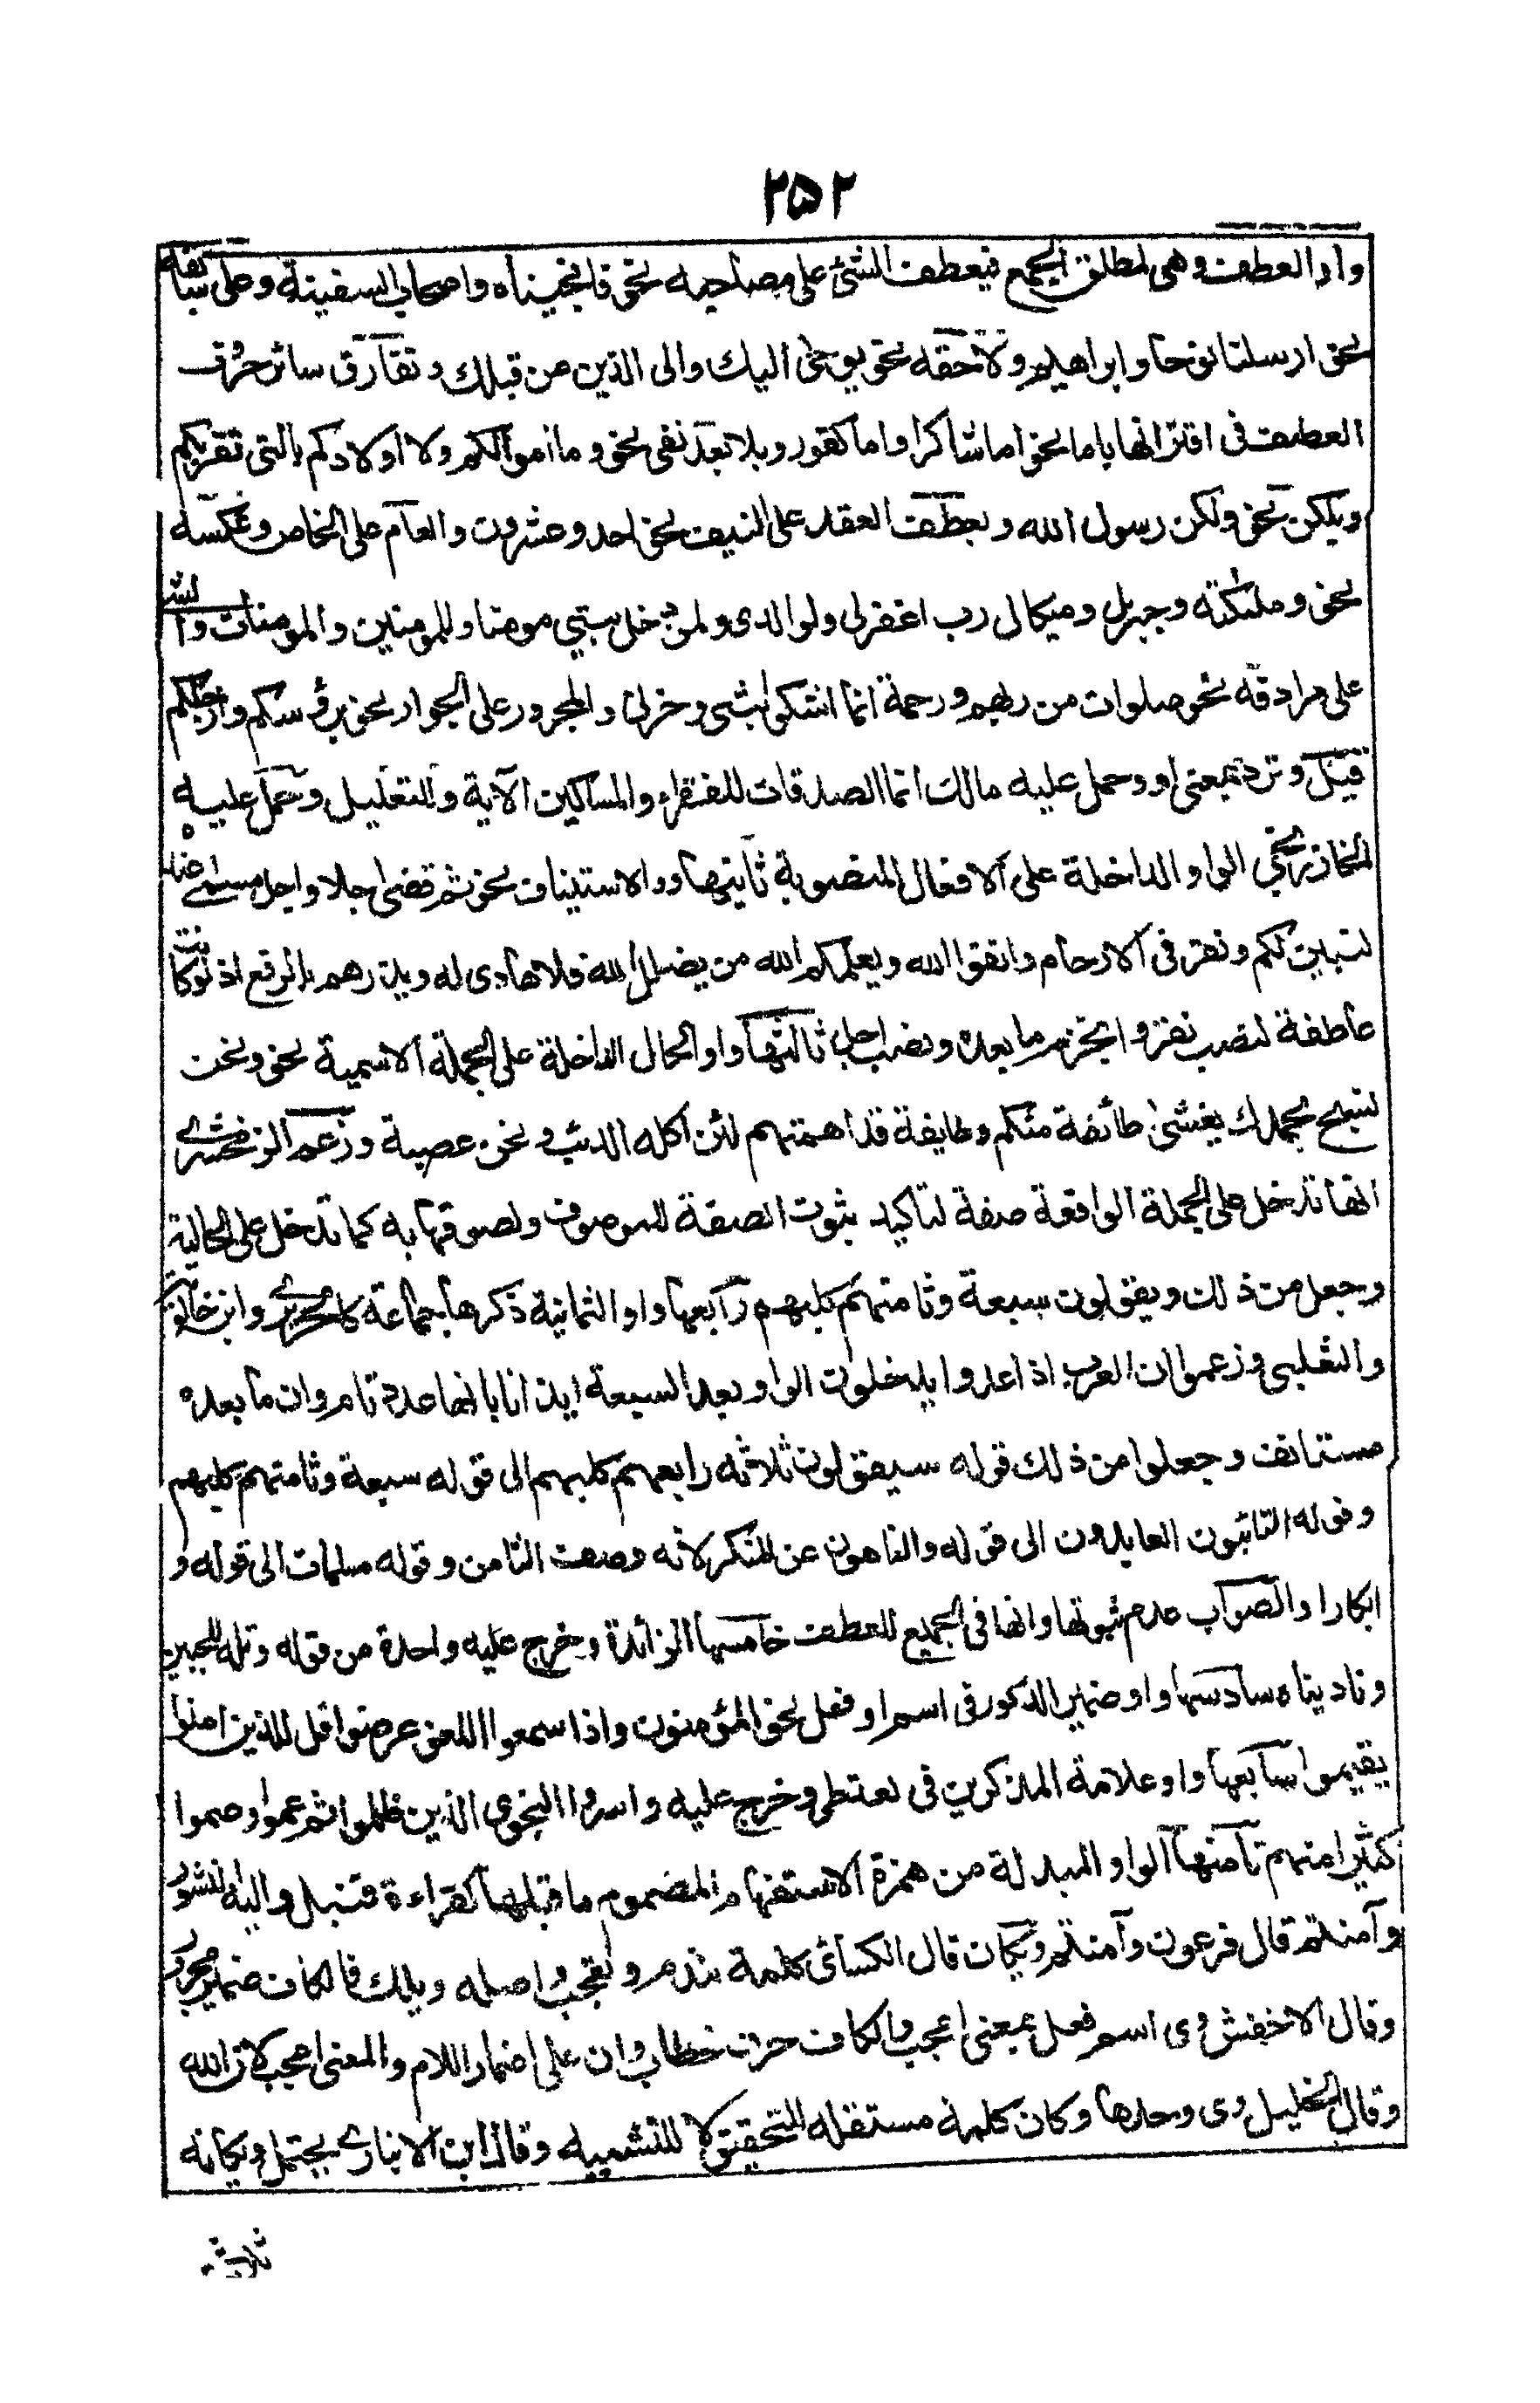 ۲۵۲
واو العطف وهى لمطلق الجمع فيعطف الشئ على مصاحبه نحو فانجيناه واصحاب السفينة وعلى سابقه
نحو ارسلنا نوحا وابراهيم ولاحقه نحو يوحى اليك والى الذين من قبلك وتفارق سائر حروف
العطف فى اقترانها باما نحو اما شاكرا واما كفورا وبلا بعد نفى نحو وما اموالكم ولا اولادكم بالتى تقربكم
وبلكن نحو ولكن رسول الله وبعطف العقد على النيف نحو احد وعشرون والعام على الخاص وعكسه
نحو وملئكته وجبريل وميكال رب اغفرلى ولوالدى ولمن دخل بيتي مومنا وللمومنين والمومنات والشئ
على مرادفه نحو صلوات من ربهم ورحمة انما اشكوا بثى وحزنى والمجرور على الجوار نحو برؤسكم وارجلكم
قيل وترد بمعنى او وحمل عليه مالك انما الصدقات للفقراء والمساكين الآية وللتعليل وحمل عليه
الخازرنجي الواو الداخلة على الافعال المنصوبة ثانيها واو الاستيناف نحو ثم قضى اجلا واجل مسمى عنده
لنبين لكم ونقر فى الارحام واتقوا الله ويعلمكم الله من يضلل الله فلا هادى له ويذرهم بالرفع اذ لو كانت
عاطفة لنصب نقر وانجزم ما بعده ونصب اجل ثالثها واو الحال الداخلة على الجملة الاسمية نحو ونحن
نسبح بحمدك يغشى طائفة منكم وطايفة قد اهمتهم لئن اكله الذئب ونحن عصبة وزعم الزمخشرى
انها تدخل على الجملة الواقعة صفة لتاكيد ثبوت الصفة للموصوف ولصوقها به كما تدخل على الحالية
وجعل من ذلك ويقولون سبعة وثامنهم كلبهم رابعها واو الثمانية ذكرها جماعة كالحريرى وابن خالويه
والثعلبى وزعموا ان العرب اذا عدوا يدخلون الواو بعد السبعة ايذانا بانها عدد تام وان ما بعده
مستانف وجعلوا من ذلك قوله سيقولون ثلاثه رابعهم كلبهم الى قوله سبعة وثامنهم كلبهم
وقوله التائبون العابدون الى قوله والناهون عن المنكر لانه وصف الثامن وقوله مسلمات الى قوله و
ابكارا والصواب عدم ثبوتها وانها فى الجميع للعطف خامسها الزائدة وخرج عليه واحدة من قوله وتله للجبين
وناديناه سادسها واو ضمير الذكور فى اسم او فعل نحو المؤمنون واذا سمعوا اللغو اعرضوا قل للذين امنوا
يقيموا سابعها واو علامة المذكرين فى لغة طى وخرج عليه واسروا النجوى الذين ظلموا ثم عموا وصموا
كثير منهم ثامنها الواو المبدلة من همزة الاستفهام المضموم ما قبلها كقراءة قنبل واليه النشور
وآمنتم قال فرعون وآمنتم ويكان قال الكسائى كلمة تندم وتعجب واصله ويلك فالكاف ضمير مجرور
وقال الاخفش وى اسم فعل بمعنى اعجب والكاف حرف خطاب وان على اضمار اللام والمعنى اعجب لان الله
وقال الخليل وى وحدها وكان كلمة مستقله للتحقيق لا للتشبيه وقال ابن الانبارى يحتمل ويكانه
ثلاثة